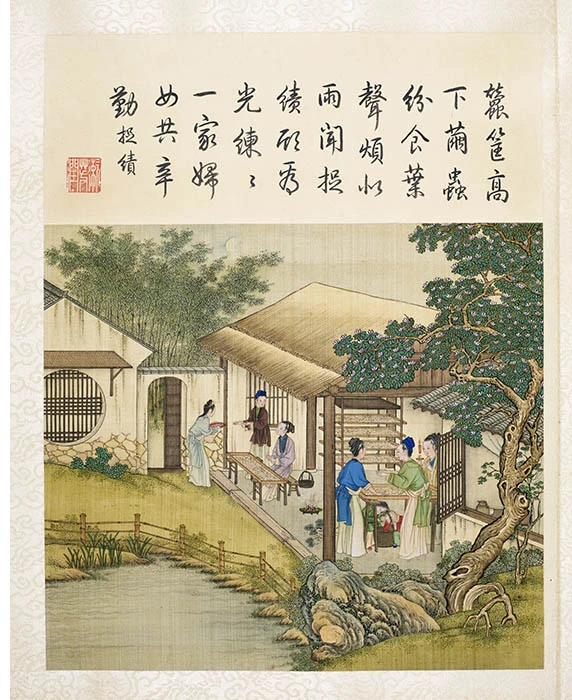 蠶筐高
下繭蟲
紛食葉
聲煩似
雨聞捉
績願為
光練〻
一家婦
女共辛
勤 捉績